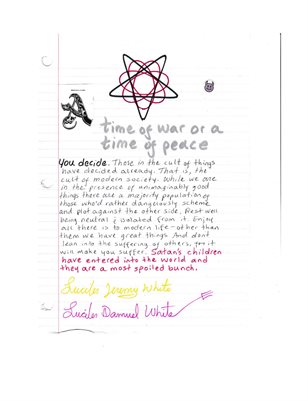 A
time of war or a
time of peace
you decide. Those in the cult of things
have decided already. That is, the
cult of modern society. While we are
in the presence of unimaginably good
things there are a majority population of
those who'd rather dangerously scheme
and plot against the other side. Rest well
being neutral & isolated from it. Enjoy
all there is to modern life - other than
them we have great things. And dont
lean into the suffering of others, for it
will make you suffer. Satan's children
have entered into the world and
they are a most spoiled bunch.
Lucifer Jeremy White
Lucifer Damuel White